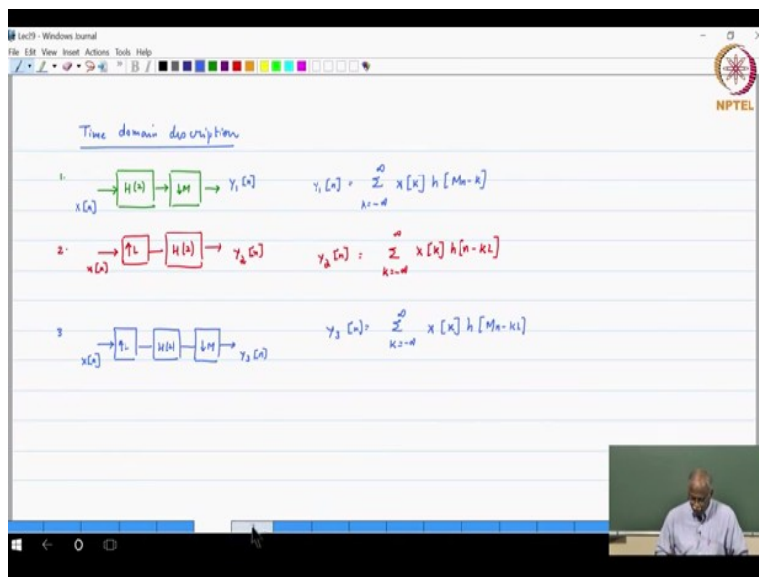 Lec19 - Windows Journal
File Edit View Insert Actions Tools Help
B I
NPTEL
Time domain description
1. x[n] → H(z) → ↓M → y₁[n] y₁[n] = ∑_{k=-∞}^{∞} x[k] h[Mn-k]
2. x[n] → ↑L — H(z) → y₂[n] y₂[n] = ∑_{k=-∞}^{∞} x[k] h[n-kL]
3 x[n] → ↑L — H(z) — ↓M → y₃[n] y₃[n] = ∑_{k=-∞}^{∞} x[k] h[Mn-kL]